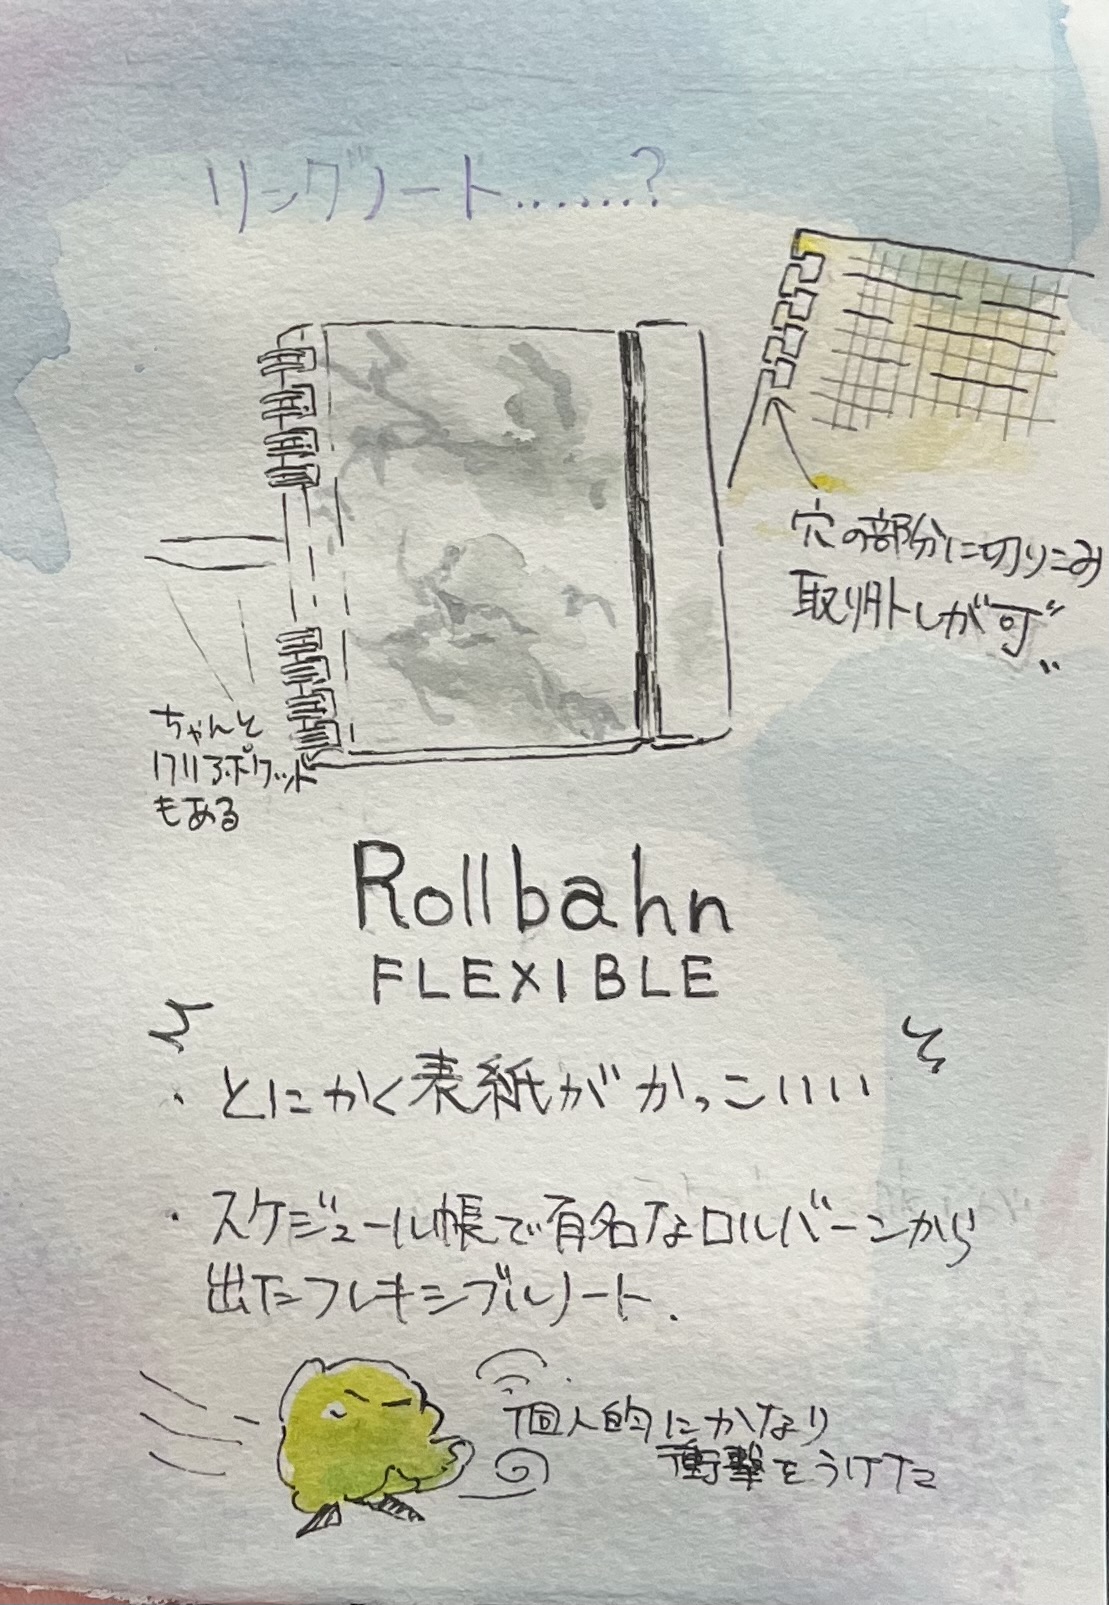 リングノート.......?
穴の部分に切りこみ
取り外しが可"
ちゃんと
クリアポケット
もある
Rollbahn
FLEXIBLE
・とにかく表紙がかっこいいい
・スケジュール帳で有名なロルバーンから
出たフレキシブルノート.
個人的にかなり
衝撃をうけた